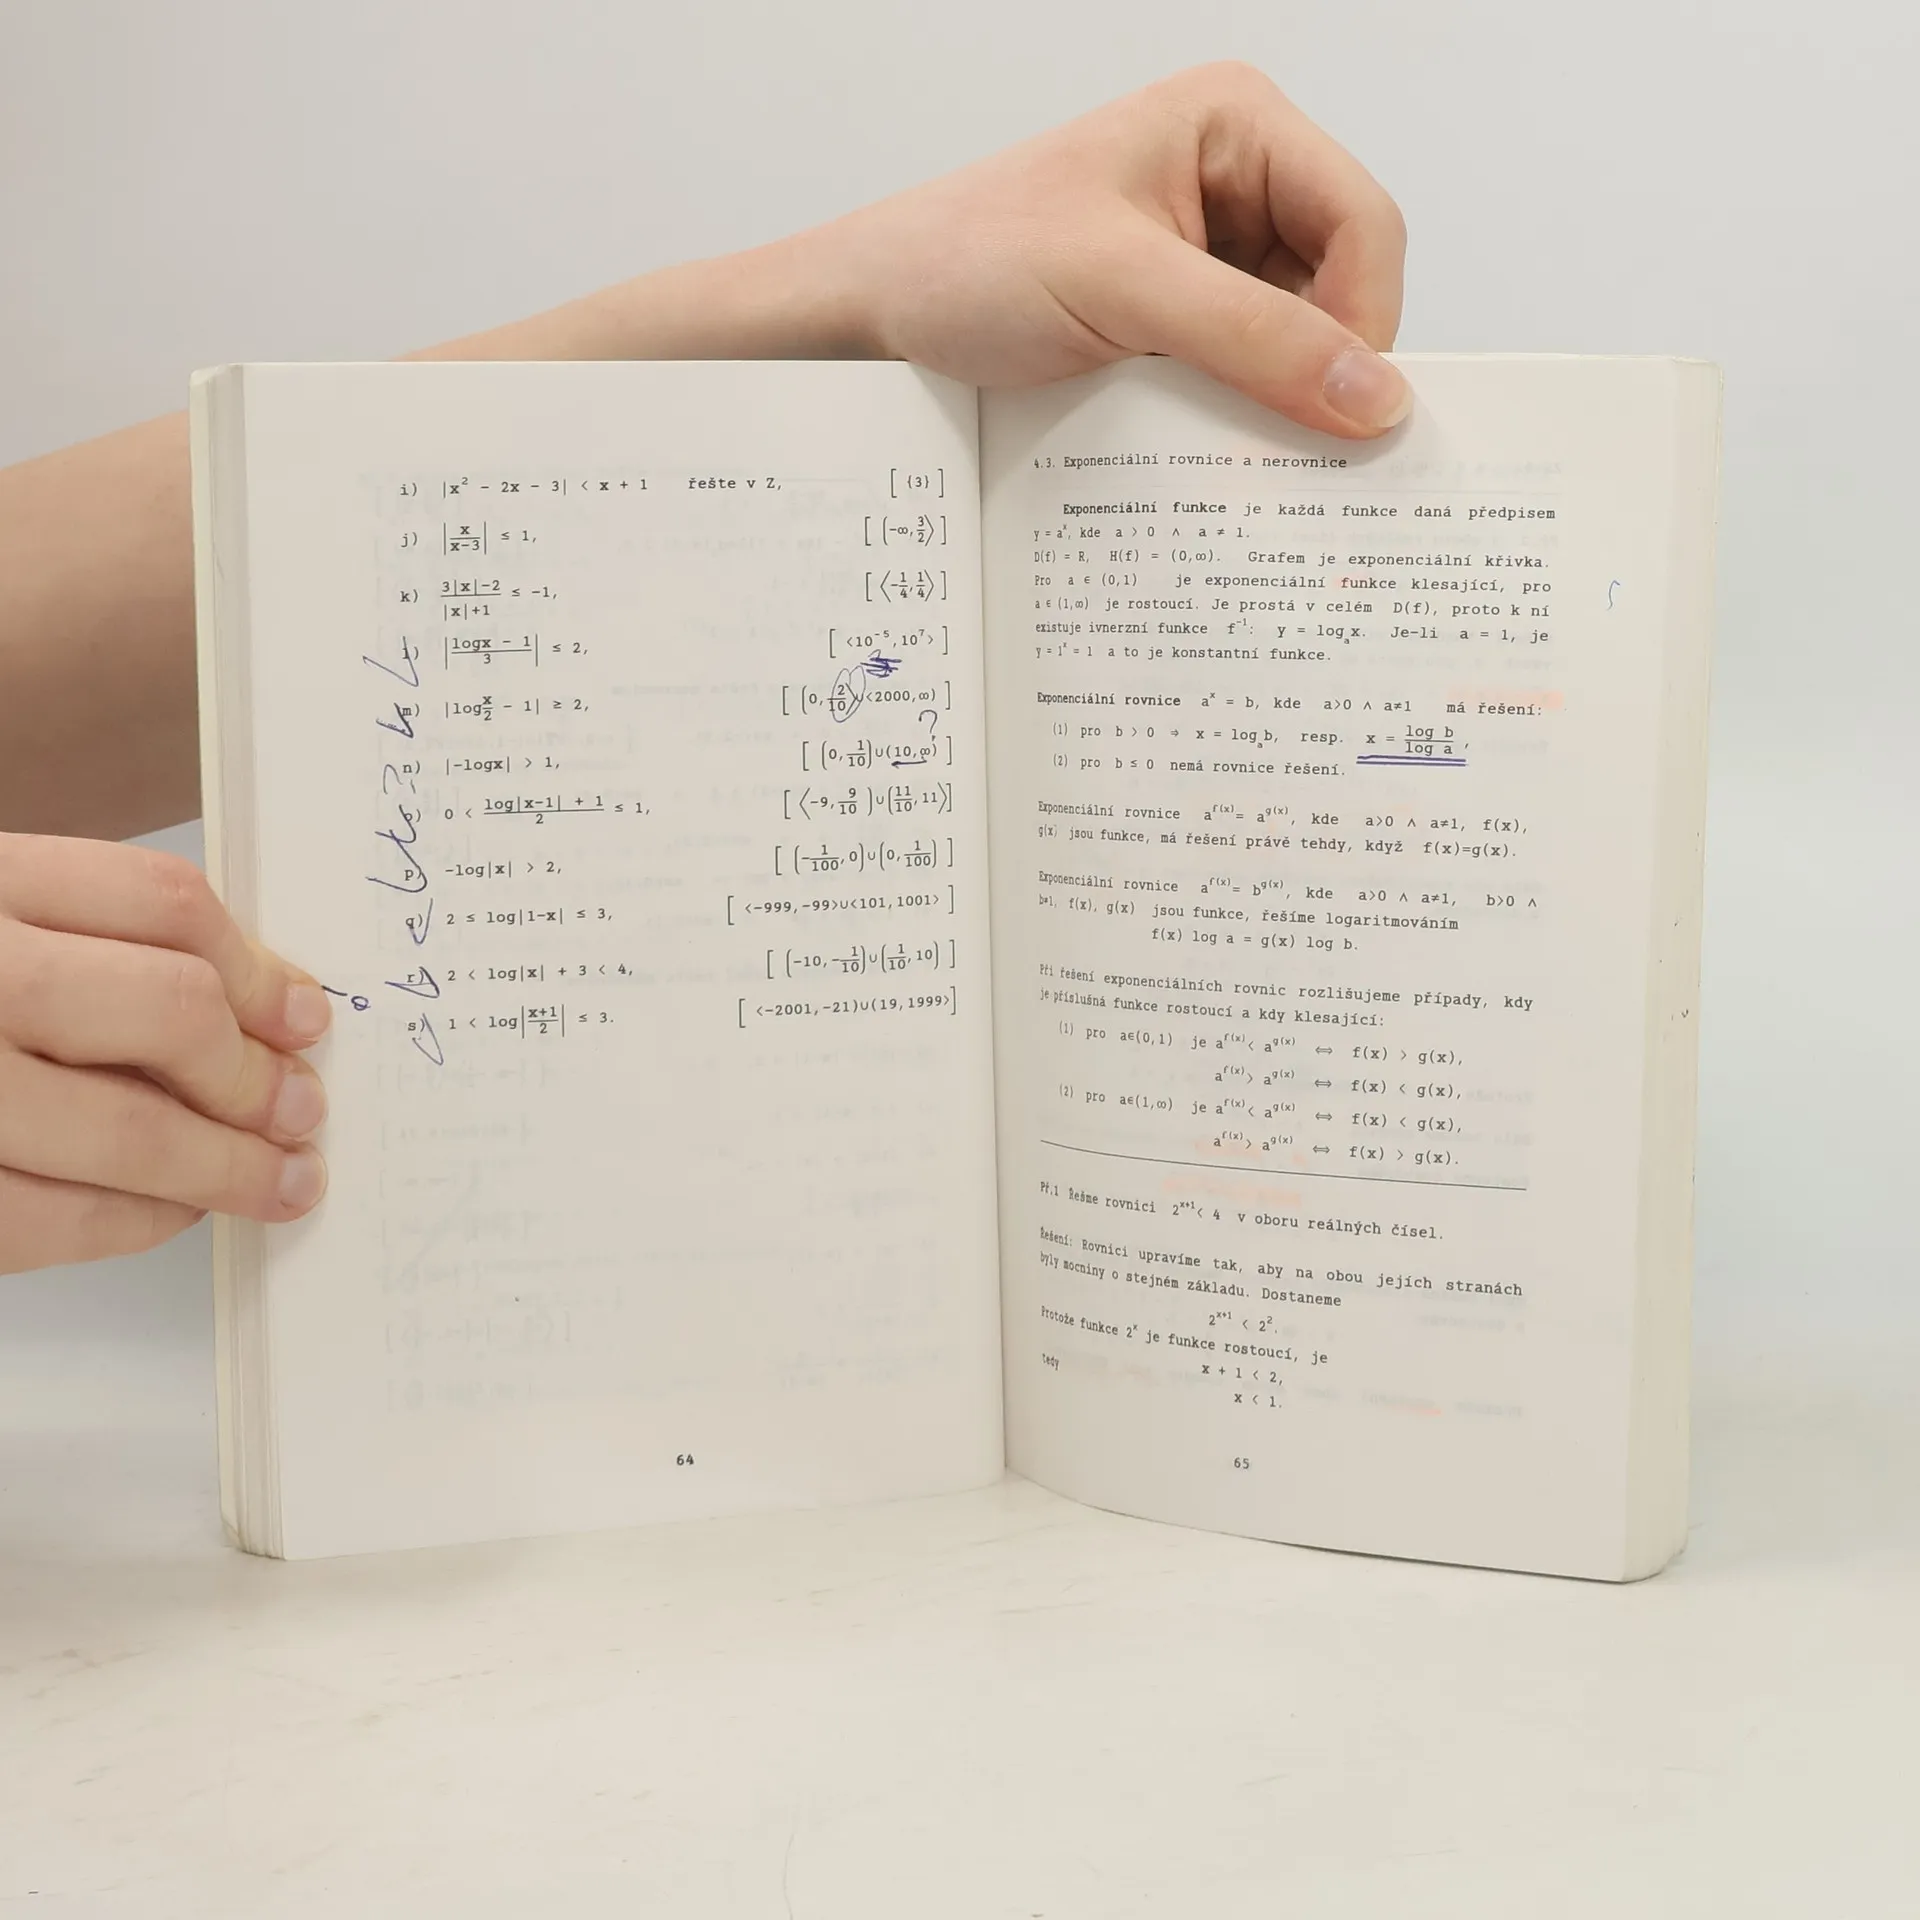 i) |x² - 2x - 3| < x + 1 řešte v Z, [ {3} ]
j) |x/(x-3)| ≤ 1, [ (-∞, 3/2⟩ ]
k) (3|x|-2)/(|x|+1) ≤ -1, [ ⟨-1/4, 1/4⟩ ]
l) |(logx - 1)/3| ≤ 2, [ <10⁻⁵, 10⁷> ]
m) |log x/2 - 1| ≥ 2, [ (0, 2/10⟩ ∪ <2000,∞) ]
?
n) |-logx| > 1, [ (0, 1/10) ∪ (10,∞) ]
o) 0 < (log|x-1| + 1)/2 ≤ 1, [ ⟨-9, 9/10) ∪ (11/10, 11⟩ ]
p) -log|x| > 2, [ (-1/100, 0) ∪ (0, 1/100) ]
q) 2 ≤ log|1-x| ≤ 3, [ <-999,-99>∪<101,1001> ]
r) 2 < log|x| + 3 < 4, [ (-10, -1/10) ∪ (1/10, 10) ]
s) 1 < log|(x+1)/2| ≤ 3. [ <-2001,-21)∪(19,1999> ]
64
4.3. Exponenciální rovnice a nerovnice
Exponenciální funkce je každá funkce daná předpisem
y = aˣ, kde a > 0 ∧ a ≠ 1.
D(f) = R, H(f) = (0,∞). Grafem je exponenciální křivka.
Pro a ∈ (0,1) je exponenciální funkce klesající, pro
a ∈ (1,∞) je rostoucí. Je prostá v celém D(f), proto k ní
existuje ivnerzní funkce f⁻¹: y = logₐx. Je-li a = 1, je
y = 1ˣ = 1 a to je konstantní funkce.
Exponenciální rovnice aˣ = b, kde a>0 ∧ a≠1 má řešení:
(1) pro b > 0 ⇒ x = logₐb, resp. x = log b / log a,
(2) pro b ≤ 0 nemá rovnice řešení.
Exponenciální rovnice a^f(x) = a^g(x), kde a>0 ∧ a≠1, f(x),
g(x) jsou funkce, má řešení právě tehdy, když f(x)=g(x).
Exponenciální rovnice a^f(x) = b^g(x), kde a>0 ∧ a≠1, b>0 ∧
b≠1, f(x), g(x) jsou funkce, řešíme logaritmováním
f(x) log a = g(x) log b.
Při řešení exponenciálních rovnic rozlišujeme případy, kdy
je příslušná funkce rostoucí a kdy klesající:
(1) pro a∈(0,1) je a^f(x) < a^g(x) ⇔ f(x) > g(x),
a^f(x) > a^g(x) ⇔ f(x) < g(x),
(2) pro a∈(1,∞) je a^f(x) < a^g(x) ⇔ f(x) < g(x),
a^f(x) > a^g(x) ⇔ f(x) > g(x).
Př.1 Řešme rovnici 2ˣ⁺¹ < 4 v oboru reálných čísel.
Řešení: Rovnici upravíme tak, aby na obou jejích stranách
byly mocniny o stejném základu. Dostaneme
2ˣ⁺¹ < 2².
Protože funkce 2ˣ je funkce rostoucí, je
x + 1 < 2,
tedy
x < 1.
65